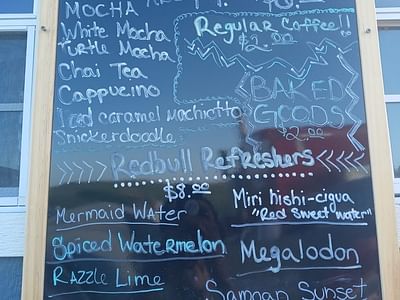 MOCHA
White Mocha
Turtle Mocha
Chai Tea
Cappucino
Iced caramel machiatto
Snickerdoodle
Regular Coffee!!
$2.00
BAKED
GOODS
$2.00
>>> Redbull Refreshers <<<<
$8.00
Mermaid WAter
Spiced Watermelon
RAZZLE LIME
Miri hishi-cigua
"Red Sweet water"
Megalodon
Samoan Sunset